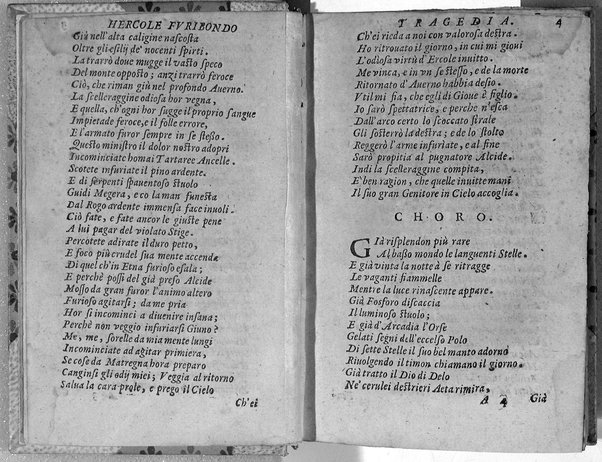 HERCOLE FVRIBONDO
Giù nell'alta caligine nascosta
Oltre gli esilij de' nocenti spirti.
La trarrò doue mugge il vasto speco
Del monte opposto; anzi trarrò feroce
Ciò, che riman giù nel profondo Auerno.
La scelleraggine odiosa hor vegna,
E quella, ch'ogni hor sugge il proprio sangue
Impietade feroce, e il folle errore,
E l'armato furor sempre in se stesso.
Questo ministro il dolor nostro adopri
Incominciate homai Tartaree Ancelle.
Scotete infuriate il pino ardente.
E di serpenti spauentoso stuolo
Guidi Megera, e co la man funesta
Dal Rogo ardente immensa face inuoli.
Ciò fate, e fate ancor le giuste pene
A lui pagar del violato Stige.
Percotete adirate il duro petto,
E foco più crudel sua mente accenda
Di quel ch'in Etna furioso esala;
E perchè possi del già preso Alcide
Mosso da gran furor l'animo altero
Furioso agitarsi; da me pria
Hor si incominci a diuenire insana;
Perchè non veggio infuriarsi Giuno?
Me, me, sorelle da mia mente lungi
Incominciate ad agitar primiera,
Se cose da Matregna hora preparo
Canginsi gli odij miei; Veggia al ritorno
Salua la cara prole, e prego il Cielo
Ch'ei
TRAGEDIA. 4
Ch'ei rieda a noi con valorosa destra.
Ho ritrouato il giorno, in cui mi gioui
L'odiosa virtù d'Ercole inuitto.
Me vinca, e in vn se stesso, e de la morte
Ritornato d'Auerno habbia desio.
Vtil mi sia, che egli di Gioue è figlio.
Io sarò spettatrice, e perche n'esca
Dall'arco certo lo scoccato strale
Gli sosterrò la destra; e de lo stolto
Reggerò l'arme infuriate, e al fine
Sarò propitia al pugnatore Alcide.
Indi la scelleraggine compita,
E' ben ragion, che quelle inuitte mani
Il suo gran Genitore in Cielo accoglia.
CHORO.
Già risplendon più rare
Al basso mondo le languenti Stelle.
E già vinta la notte à se ritragge
Le vaganti fiammelle
Mentre la luce rinascente appare.
Già Fosforo discaccia
Il luminoso stuolo;
E già d'Arcadia l'Orse
Gelati segni dell'eccelso Polo
Di sette Stelle il suo bel manto adorno
Riuolgendo il timon chiamano il giorno.
Già tratto il Dio di Delo
Ne' cerulei destrieri Aeta rimira,
A 4 Già